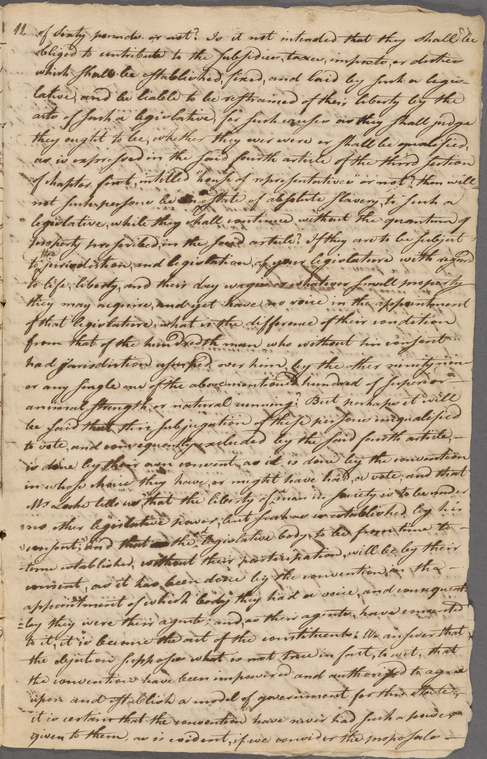 12 of sixty pounds or not? Is it not intended that they shall be
obliged to contribute to the subsidies, taxes, imposts, or duties
which shall be established, fixed, and laid by such a legis-
lative, and be liable to be restrained of their liberty by the
acts of such a legislative, for such causes as they shall judge
they ought to be, whether they ever were or shall be qualified,
as is expressed in the said fourth article of the third section
of chapter first, intitled "house of representative" or not? then will
not such persons be in a state of absolute slavery to such a
legislative, while they shall continue without the quantum of
property prescribed in the said article? If they are to be subject
to the jurisdiction, and legislation of your legislature with regard
to life, liberty, and their day wages or whatever small property
they may acquire, and yet have no voice in the appointment
of that legislature, what is the difference of their condition
from that of the hundredth man who without his consent
had jurisdiction usurped over him, by the other ninety nine
or any single one of the abovementioned hundred of superior
animal strength or natural cunning? But perhaps it will
be said that this subjugation of these persons inqualified
to vote, and consequently excluded by the said fourth article,
is done by their own consent, as it is done by the convention
in whose choice they have, or might have had, a vote, and that
Mr Locke tells us, that the liberty of man in society is to be under
no other legislative power, but such as is established by his
consent; and the legislative body, to be from time to
time established, without their participation, will be by their
consent, as it has been done by the convention, in the
appointment of which body they had a voice, and consequent-
ly they were their agents; and, as their agents, have consented
to it, it is become the act of the constituents; We answer that
the objection supposes what is not true in fact, to wit, that
the convention have been impowered and authorised to agree
upon and establish a model of government for this state;
it is certain that the convention have never had such a power
given to them, as is evident, if we consider the proposals